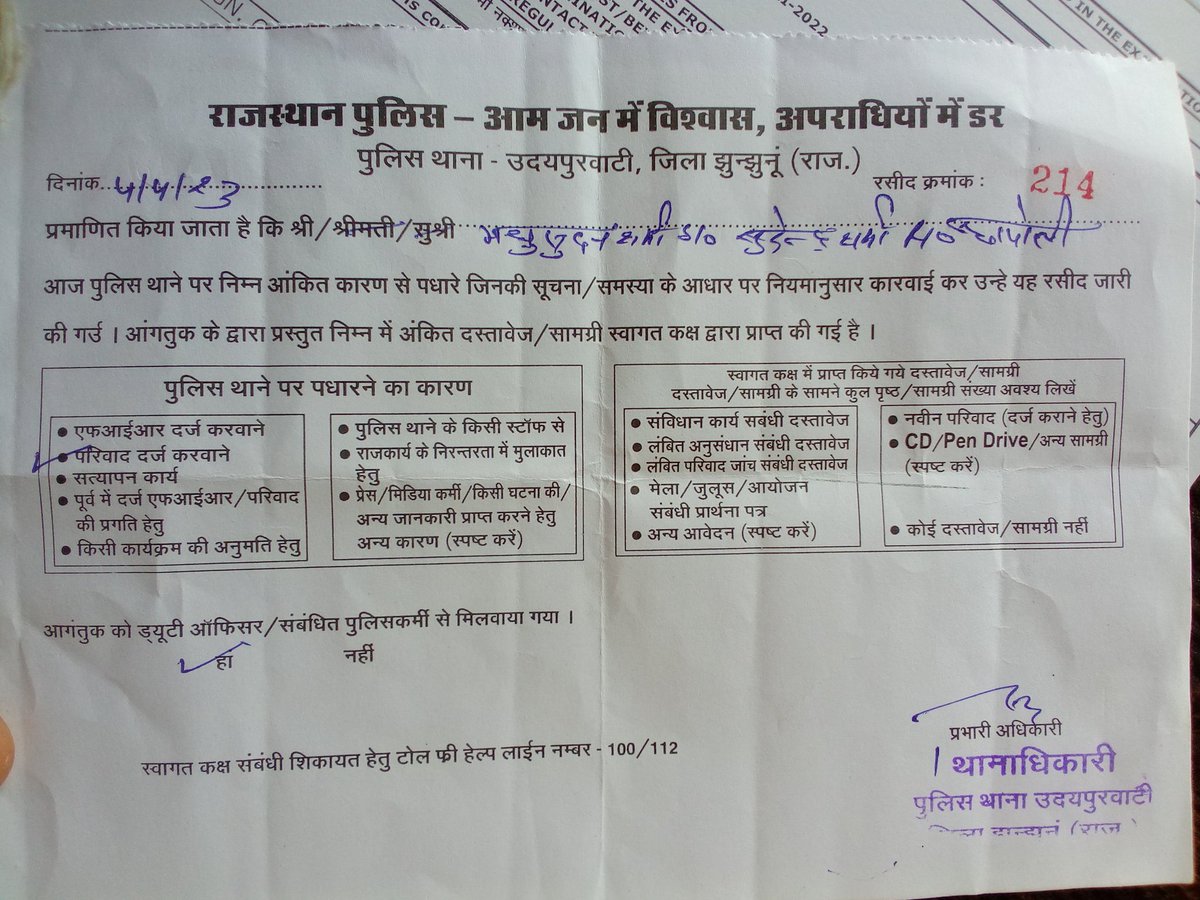 1-2022
राजस्थान पुलिस – आम जन में विश्वास, अपराधियों में डर
पुलिस थाना - उदयपुरवाटी, जिला झुन्झुनूं (राज.)
दिनांक 4/4/23 रसीद क्रमांक : 214
प्रमाणित किया जाता है कि श्री/श्रीमती/सुश्री मधुसुदन शर्मा S/o सुरेन्द्र शर्मा छापोली
आज पुलिस थाने पर निम्न आंकित कारण से पधारे जिनकी सूचना/समस्या के आधार पर नियमानुसार कारवाई कर उन्हे यह रसीद जारी
की गर्ड । आंगतुक के द्वारा प्रस्तुत निम्न में अंकित दस्तावेज/सामग्री स्वागत कक्ष द्वारा प्राप्त की गई है ।
पुलिस थाने पर पधारने का कारण
● एफआईआर दर्ज करवाने
● परिवाद दर्ज करवाने
● सत्यापन कार्य
● पूर्व में दर्ज एफआईआर/परिवाद
की प्रगति हेतु
● किसी कार्यक्रम की अनुमति हेतु
● पुलिस थाने के किसी स्टॉफ से
● राजकार्य के निरन्तरता में मुलाकात
हेतु
● प्रेस/मिडिया कर्मी/किसी घटना की/
अन्य जानकारी प्राप्त करने हेतु
अन्य कारण (स्पष्ट करें)
स्वागत कक्ष में प्राप्त किये गये दस्तावेज/सामग्री
दस्तावेज/सामग्री के सामने कुल पृष्ठ/सामग्री संख्या अवश्य लिखें
● संविधान कार्य सबंधी दस्तावेज
● लंबित अनुसंधान संबंधी दस्तावेज
● लंबित परिवाद जांच संबंधी दस्तावेज
● मेला/जुलूस/आयोजन
संबंधी प्रार्थना पत्र
● अन्य आवेदन (स्पष्ट करें)
● नवीन परिवाद (दर्ज कराने हेतु)
● CD/Pen Drive/अन्य सामग्री
(स्पष्ट करें)
● कोई दस्तावेज/सामग्री नहीं
आगंतुक को ड्यूटी ऑफिसर/संबंधित पुलिसकर्मी से मिलवाया गया ।
हा नहीं
प्रभारी अधिकारी
थामाधिकारी
पुलिस थाना उदयपुरवाटी
स्वागत कक्ष संबंधी शिकायत हेतु टोल फ्री हेल्प लाईन नम्बर - 100/112